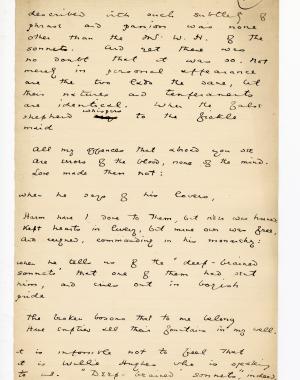 described with such subtlety of
phrase and passion was none
other than the Mr W. H. of the
sonnets. And yet there was
no doubt that it was so. Not
merely in personal appearance
are the two lads the same, but
their natures and temperaments
are identical. When the false
shepherd whispers to the fickle
maid
All my offences that abroad you see
are errors of the blood, none of the mind.
Love made them not:
when he says of his lovers,
Harm have I done to them, but ne'er was harmed
Kept hearts in livery, but mine own was free,
And reigned, commanding in his monarchy:
when he tells us of the "deep-brained
sonnets" that one of them had sent
him, and cries out in boyish
pride
The broken bosoms that to me belong
Have emptied all their fountains in my well:
it is impossible not to feel that
it is Willie Hughes who is speaking
to us. "Deep-brained sonnets" indeed